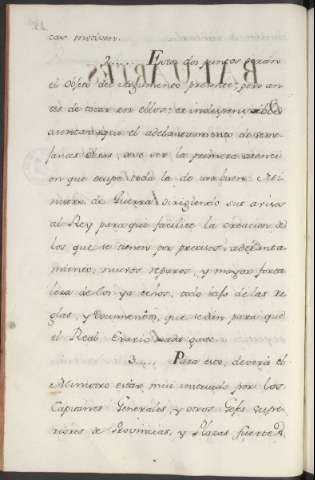 tas meticen.
2. Estos dos puntos serán
el Objeto del Argumento presente; pero an-
tes de tocar en ellos, es indispensable
anotar, que el adelantamiento de seme-
jantes Obras, deve ser la primera atencion
en que ocupe todo la de un buen Mi-
nistro de Guerra, dirigiendo sus avisos
al Rey para que facilite la creacion de
los que se tienen por precisos, adelanta
miento, nuevos reparos, y mayor forta
leza de los ya echos, todo bajo de las re
glas, y Documentos, que se dén para que
el Real Erario gaste
3. Para esto, deverá el
Ministro estár mui instruido por los
Capitanes Generales, y otros Gefes supe-
riores de Provincias, y Plazas fuertes
BALUARTES